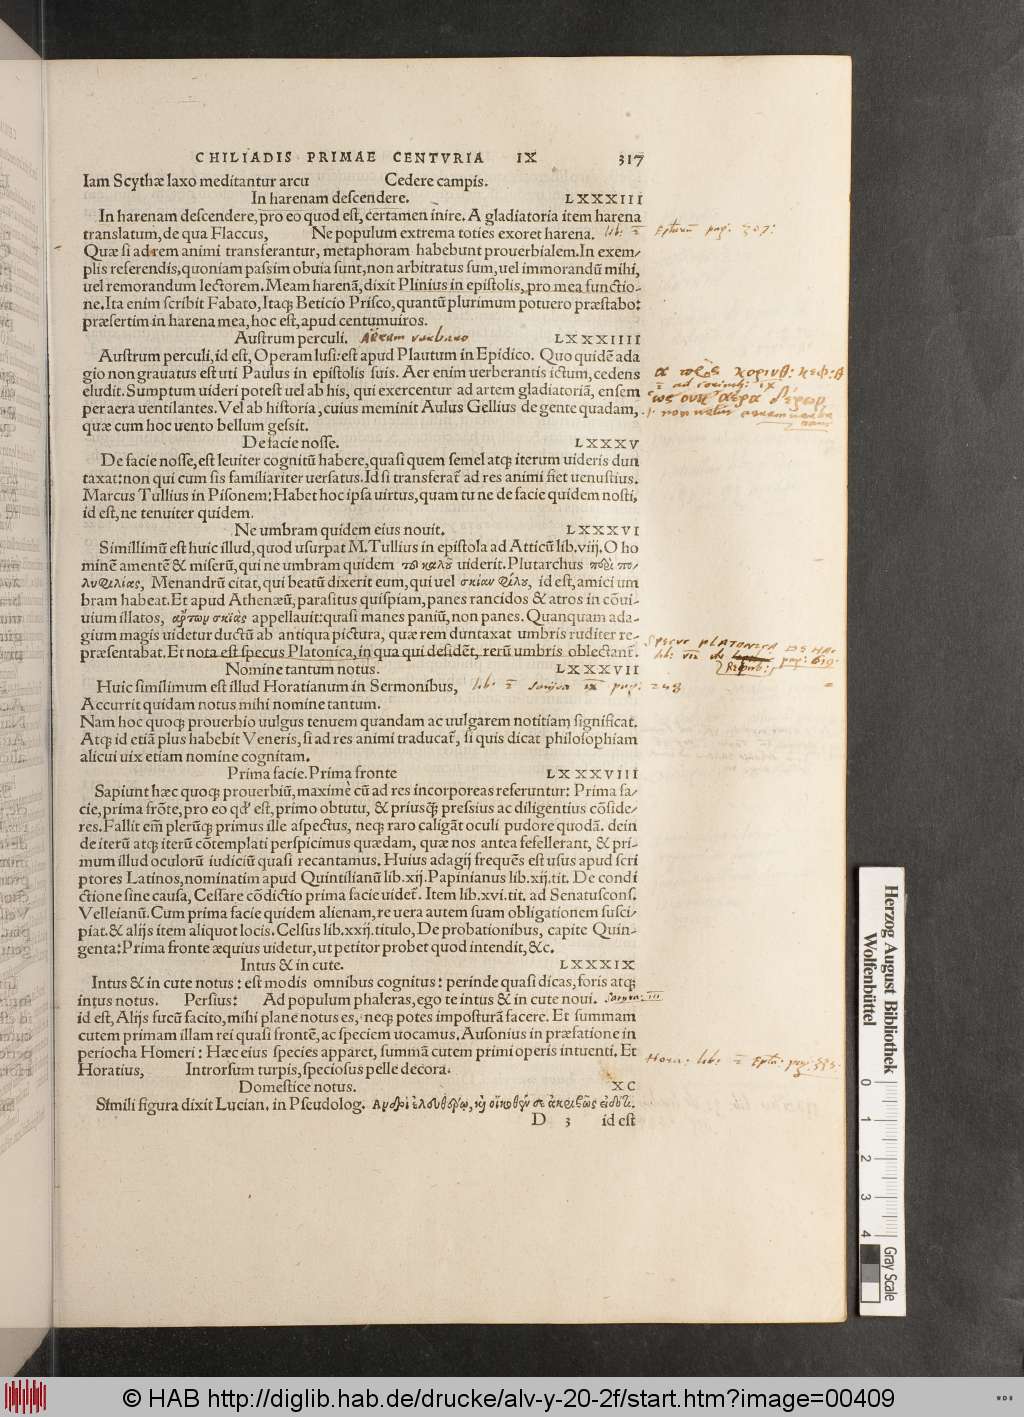 CHILIADIS PRIMAE CENTVRIA IX 317
Iam Scythæ laxo meditantur arcu Cedere campis.
In harenam descendere. LXXXIII
In harenam descendere, pro eo quod est, certamen inire. A gladiatoria item harena
translatum, de qua Flaccus, Ne populum extrema toties exoret harena. lib: pag: 307:
Quæ si ad rem animi transferantur, metaphoram habebunt prouerbialem. In exem/
plis referendis, quoniam passim obuia sunt, non arbitratus sum, uel immorandũ mihi,
uel remorandum lectorem. Meam harenã, dixit Plinius in epistolis, pro mea functio-
ne. Ita enim scribit Fabato, Itaq; Beticio Prisco, quantũ plurimum potuero præstabo:
præsertim in harena mea, hoc est, apud centumuiros.
Austrum perculi. LXXXIIII
Austrum perculi, id est, Operam lusi: est apud Plautum in Epidico. Quo quidẽ ada
gio non grauatus est uti Paulus in epistolis suis. Aer enim uerberantis ictum, cedens
eludit. Sumptum uideri potest uel ab his, qui exercentur ad artem gladiatoriã, ensem
per aera uentilantes. Vel ab historia, cuius meminit Aulus Gellius de gente quadam,
quæ cum hoc uento bellum gessit.
De facie nosse. LXXXV
De facie nosse, est leuiter cognitũ habere, quasi quem semel atq; iterum uideris dun
taxat: non qui cum sis familiariter uersatus. Id si transferat᷑ ad res animi fiet uenustius.
Marcus Tullius in Pisonem: Habet hoc ipsa uirtus, quam tu ne de facie quidem nosti,
id est, ne tenuiter quidem.
Ne umbram quidem eius nouit. LXXXVI
Simillimũ est huic illud, quod usurpat M. Tullius in epistola ad Atticũ lib. viij. O ho
minẽ amentẽ & miserũ, qui ne umbram quidem τοῦ καλοῦ uiderit. Plutarchus περὶ πο-
λυφιλίας, Menandrũ citat, qui beatũ dixerit eum, qui uel σκίαν φίλου, id est, amici um
bram habeat. Et apud Athenæũ, parasitus quispiam, panes rancidos & atros in cõui-
uium illatos, ἄρτων σκιὰς appellauit: quasi manes paniũ, non panes. Quanquam ada-
gium magis uidetur ductũ ab antiqua pictura, quæ rem duntaxat umbris ruditer re-
præsentabat. Et nota est specus Platonica, in qua qui desidẽt, rerũ umbris oblectant᷑.
SPECVS PLATONICA
pag: 619.
Nomine tantum notus. LXXXVII
Huic simillimum est illud Horatianum in Sermonibus, lib: satyra ix pag: 248
Accurrit quidam notus mihi nomine tantum.
Nam hoc quoq; prouerbio uulgus tenuem quandam ac uulgarem notitiam significat.
Atq; id etiã plus habebit Veneris, si ad res animi traducat᷑, si quis dicat philosophiam
alicui uix etiam nomine cognitam.
Prima facie. Prima fronte LXXXVIII
Sapiunt hæc quoq; prouerbiũ, maximè cũ ad res incorporeas referuntur: Prima fa/
cie, prima frõte, pro eo qd' est, primo obtutu, & priusq̃ pressius ac diligentius cõside/
res. Fallit em̃ plerũq; primus ille aspectus, neq; raro caligãt oculi pudore quodã. dein
de iterũ atq; iterũ cõtemplati perspicimus quædam, quæ nos antea fefellerant, & pri-
mum illud oculorũ iudiciũ quasi recantamus. Huius adagij frequẽs est usus apud scri
ptores Latinos, nominatim apud Quintilianũ lib. xij. Papinianus lib. xij. tit. De condi
ctione sine causa, Cessare cõdictio prima facie uidet᷑. Item lib. xvi. tit. ad Senatuscons.
Velleianũ. Cum prima facie quidem alienam, re uera autem suam obligationem susci/
piat. & alijs item aliquot locis. Celsus lib. xxij. titulo, De probationibus, capite Quin-
genta: Prima fronte æquius uidetur, ut petitor probet quod intendit, &c.
Intus & in cute. LXXXIX
Intus & in cute notus: est modis omnibus cognitus: perinde quasi dicas, foris atq;
intus notus. Persius: Ad populum phaleras, ego te intus & in cute noui. Satyra: iii
id est, Alijs fucũ facito, mihi plane notus es, neq; potes imposturã facere. Et summam
cutem primam illam rei quasi frontẽ, ac speciem uocamus. Ausonius in præfatione in
periocha Homeri: Hæc eius species apparet, summã cutem primi operis intuenti. Et
Horatius, Introrsum turpis, speciosus pelle decora.
Hora: lib:
Domestice notus. XC
Simili figura dixit Lucian. in Pseudolog. Ἀνδρὶ ἐλευθέρῳ, καὶ οἴκοθέν σε ἀκριβῶς εἰδότι.
D 3 id est
Herzog August Bibliothek
Wolfenbüttel
0 1 2 3 4
Gray Scale
© HAB http://diglib.hab.de/drucke/alv-y-20-2f/start.htm?image=00409